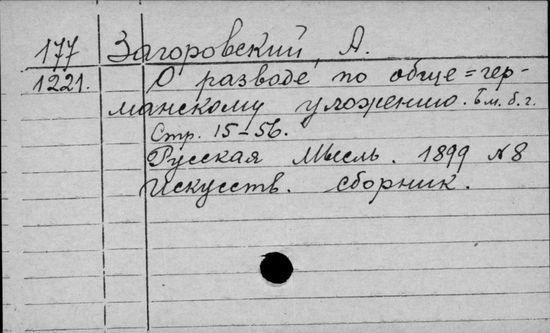 177 Загоровский, А.
1221. О разводе по обще=гер-
манскому уложению. Б.м.б.г.
Стр. 15-56.
Русская Мысль. 1899 №8
Искусств. сборник.